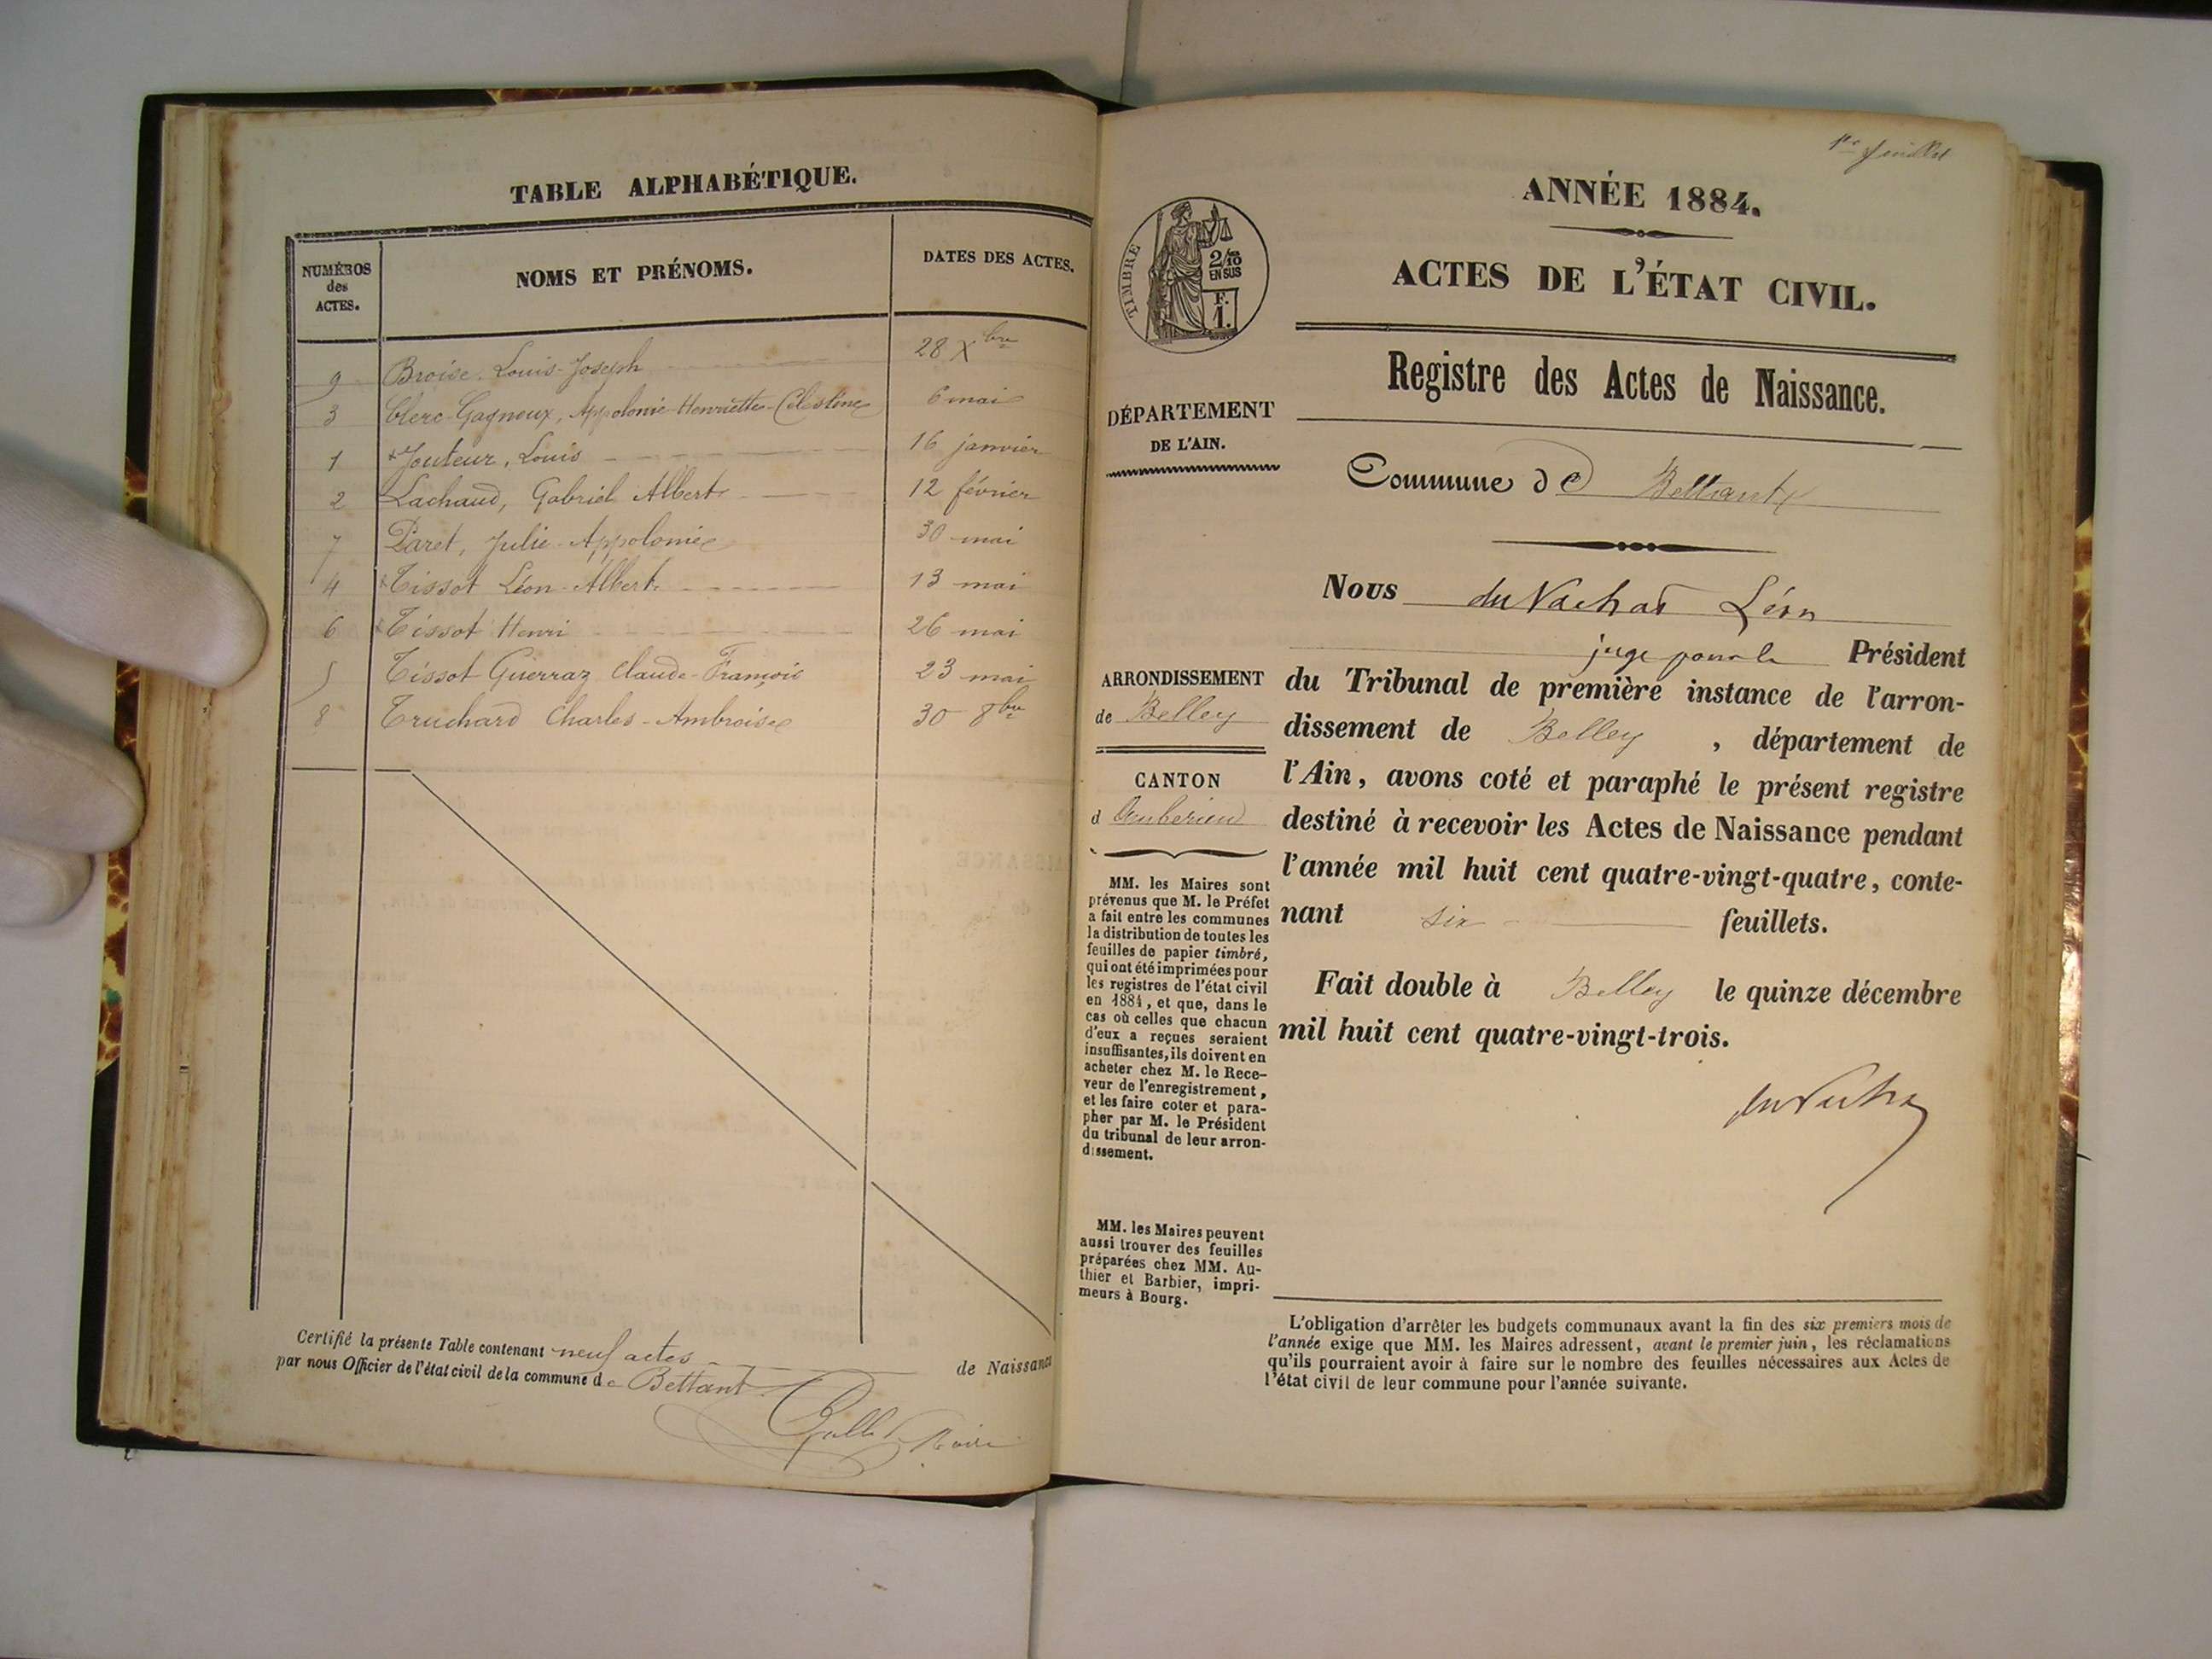 TABLE ALPHABÉTIQUE.
NUMÉROS
des
ACTES.
NOMS ET PRÉNOMS.
DATES DES ACTES.
9 Broise. Louis-Joseph 28 Xbre
3 Clerc-Gagneux, Appolonie-Henriette-Célestine 6 mai
1 Jouteur, Louis 16 janvier
2 Lachaud, Gabriel Albert 12 février
7 Paret, Julie-Appolonie 30 mai
4 Tissot Léon-Albert 13 mai
6 Tissot Henri 26 mai
5 Tissot Guerraz Claude-François 23 mai
8 Truchard Charles-Ambroise 30 8bre
Certifié la présente Table contenant neuf actes de Naissance
par nous Officier de l'état civil de la commune de Bettant
1er feuillet
ANNÉE 1884.
TIMBRE
2/10
EN SUS
F.
1.
ACTES DE L'ÉTAT CIVIL.
Registre des Actes de Naissance.
DÉPARTEMENT
DE L'AIN.
Commune de Bettant
Nous du Vachat Léon
juge pour le Président
ARRONDISSEMENT
de Belley
du Tribunal de première instance de l'arron-
dissement de Belley , département de
l'Ain, avons coté et paraphé le présent registre
destiné à recevoir les Actes de Naissance pendant
l'année mil huit cent quatre-vingt-quatre, conte-
nant six feuillets.
Fait double à Belley le quinze décembre
mil huit cent quatre-vingt-trois.
CANTON
d Ambérieu
MM. les Maires sont
prévenus que M. le Préfet
a fait entre les communes
la distribution de toutes les
feuilles de papier timbré,
qui ont été imprimées pour
les registres de l'état civil
en 1884, et que, dans le
cas où celles que chacun
d'eux a reçues seraient
insuffisantes, ils doivent en
acheter chez M. le Rece-
veur de l'enregistrement,
et les faire coter et para-
pher par M. le Président
du tribunal de leur arron-
dissement.
MM. les Maires peuvent
aussi trouver des feuilles
préparées chez MM. Au-
thier et Barbier, impri-
meurs à Bourg.
L'obligation d'arrêter les budgets communaux avant la fin des six premiers mois de
l'année exige que MM. les Maires adressent, avant le premier juin, les réclamations
qu'ils pourraient avoir à faire sur le nombre des feuilles nécessaires aux Actes de
l'état civil de leur commune pour l'année suivante.